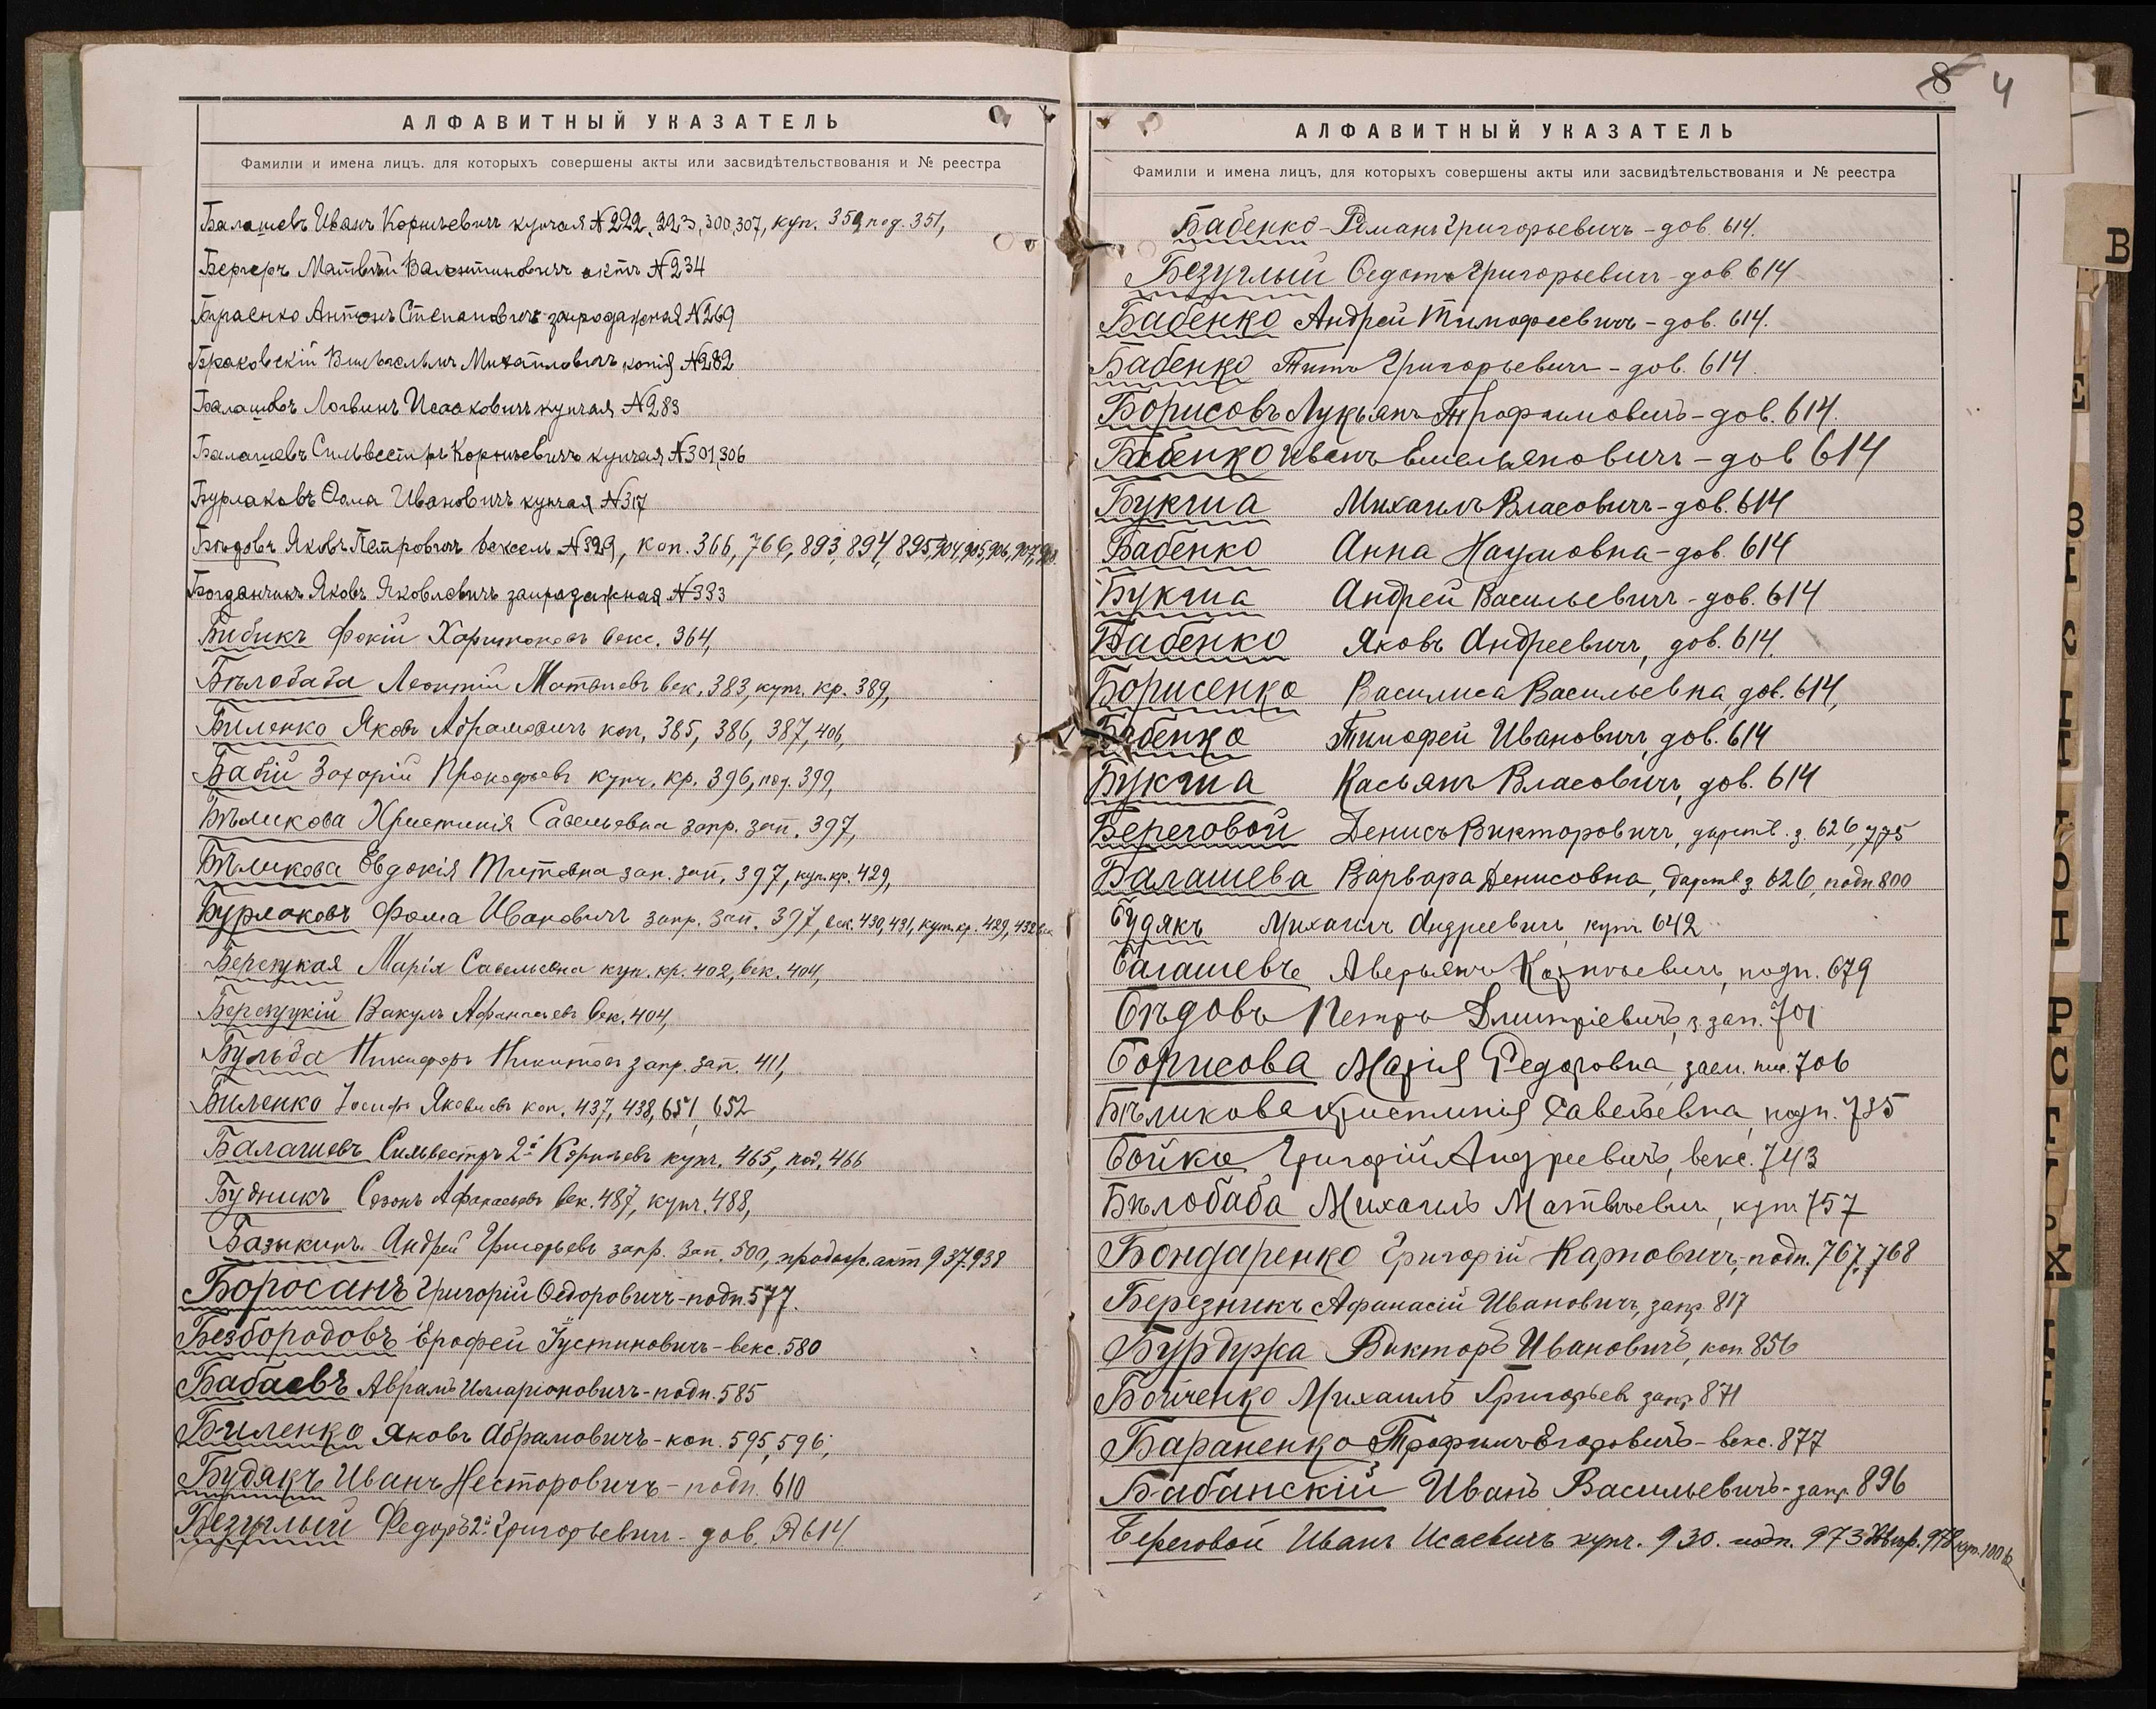 АЛФАВИТНЫЙ УКАЗАТЕЛЬ
Фамиліи и имена лицъ. для которыхъ совершены акты или засвидѣтельствованія и № реестра
Балашевъ Иванъ Корнѣевичъ купчая №222, 323, 300, 307, куп. 350, под. 351,
Бергеръ Матвѣй Валентиновичъ актъ №234
Антонъ Степановичъ запродажная №269
Браковскій Вильгельмъ Михайловичъ копія №282
Балашовъ Логвинъ Исааковичъ купчая №283
Балашевъ Сильвестръ Корнѣевичъ купчая №301,306
Бурлаковъ Ѳома Ивановичъ купчая №317
Бѣдовъ Яковъ Петровичъ вексель №329, коп. 366, 766, 893, 894, 895, 904, 905, 906, 907,
Богданчикъ Яковъ Яковлевичъ запродажная №333
Бибикъ Фокій Харитоновъ векс. 364,
Бѣлобаба Леонтій Матвѣевъ век. 383, купч. кр. 389,
Биленко Яковъ Абрамовичъ коп. 385, 386, 387, 406,
Бабій Захарій Прокофьевъ купч. кр. 396, под. 399,
Бѣликова Христинія Савельевна запр. зап. 397,
Бѣликова Евдокія Титовна зап. зап. 397, куп. кр. 429,
Бурлаковъ Фома Ивановичъ запр. зап. 397, век. 430, 431, купч. кр. 429, 432
Березуцкая Марія Савельевна куп. кр. 402, век. 404,
Березуцкій Вакулъ Афанасьевъ век. 404,
Бульба Никифоръ Никитовъ запр. зап. 411,
Биленко Іосифъ Яковлевъ коп. 437, 438, 651, 652
Балашевъ Сильвестръ 2й Корнѣевъ купч. 465, под. 466
Будникъ Созонъ Афанасьевъ век. 487, купч. 488,
Базыкинъ Андрей Григорьевъ запр. зап. 500, продаж. акт 937.938
Боросанъ Григорій Ѳедоровичъ - подп. 577.
Безбородовъ Ерофей Іустиновичъ - векс. 580
Бабаевъ Аврамъ Илларіоновичъ - подп. 585
Биленко Яковъ Абрамовичъ - коп. 595, 596,
Будякъ Иванъ Несторовичъ - подп. 610
Безуглый Федоръ 2й Григорьевич - дов. №614.
8 4
АЛФАВИТНЫЙ УКАЗАТЕЛЬ
Фамиліи и имена лицъ, для которыхъ совершены акты или засвидѣтельствованія и № реестра
Бабенко - Романъ Григорьевичъ - дов. 614.
Безуглый Ѳедотъ Григорьевичъ - дов. 614
Бабенко Андрей Тимофеевичъ - дов. 614.
Бабенко Титъ Григорьевичъ - дов. 614.
Борисовъ Лукьянъ Трофимовичъ - дов. 614.
Бабенко Иванъ Емельяновичъ - дов 614
Букша Михаилъ Власовичъ - дов. 614
Бабенко Анна Наумовна - дов. 614
Букша Андрей Васильевичъ - дов. 614
Бабенко Яковъ Андреевичъ, дов. 614.
Борисенко Василиса Васильевна, дов. 614,
Бабенко Тимофей Ивановичъ, дов. 614
Букша Касьянъ Власовичъ, дов. 614
Береговой Денисъ Викторовичъ, дарств. з. 626, 775
Балашева Варвара Денисовна, дарств з 626, подп 800
Будякъ Михаилъ Андреевичъ, купч 642
Балашевъ Аверьянъ Корнѣевичъ, подп. 679
Бѣдовъ Петръ Дмитріевичъ, з. зап. 701
Борисова Марія Федоровна, заем. пис. 706
Бѣликова Христинія Савельевна, подп. 735
Бойко Григорій Андреевичъ, векс. 743
Бѣлобаба Михаилъ Матвѣевич, купч 757
Бондаренко Григорій Карповичъ, - подп. 767, 768
Березникъ Афанасій Ивановичъ, запр. 817
Бурдужа Викторъ Ивановичъ, коп. 856
Бойченко Михаилъ Григорьев запр 871
Бараненко Трофимъ Егоровичъ - векс. 877
Бабанскій Иванъ Васильевичъ - запр. 896
Береговой Иванъ Исаевичъ купч. 930. подп. 973 978
В